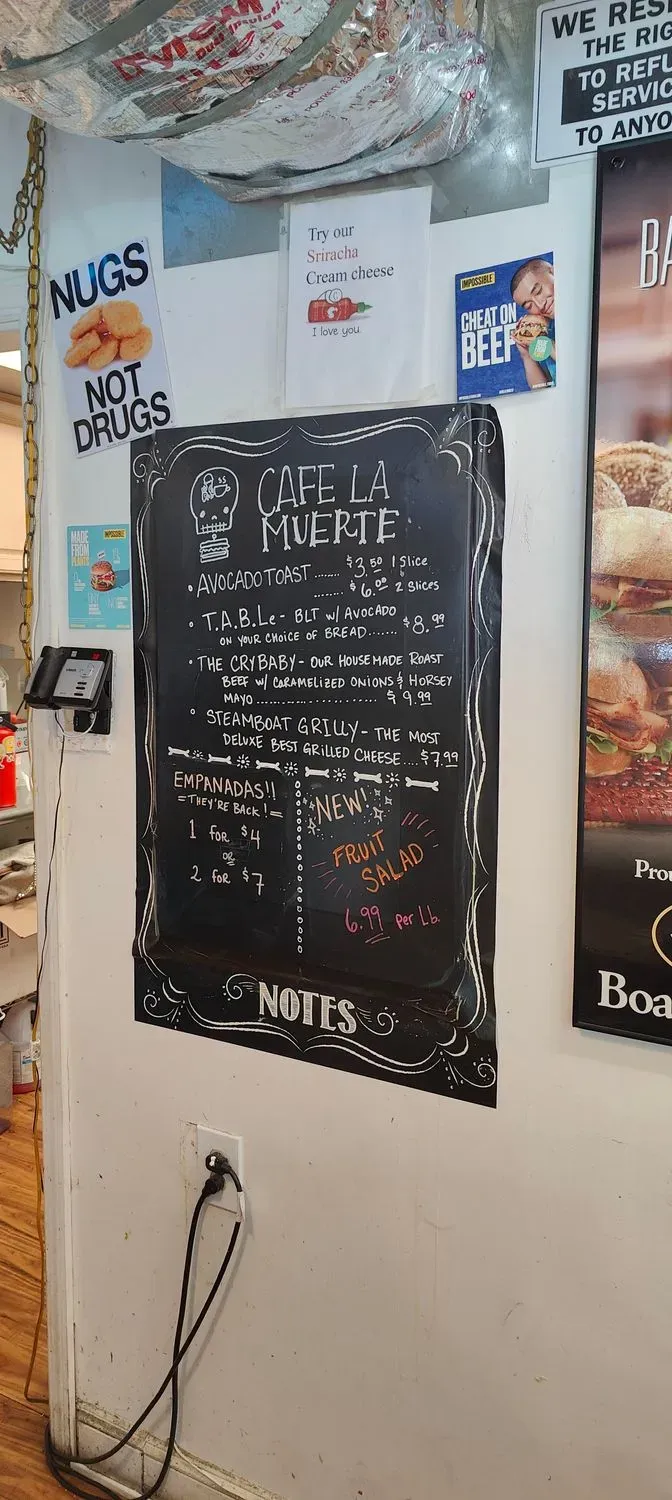 WE RES
THE RIG
TO REFU
SERVIC
TO ANYO
Try our
Sriracha
Cream cheese
I love you.
NUGS
NOT
DRUGS
IMPOSSIBLE
CHEAT ON
BEEF
BA
MADE
FROM
PLANTS
IMPOSSIBLE
CAFE LA
MUERTE
• AVOCADO TOAST ....... $3.50 1 Slice
....... $6.00 2 Slices
• T.A.B.Le - BLT W/ AVOCADO
ON YOUR CHOICE OF BREAD...... $8.99
• THE CRYBABY - OUR HOUSEMADE ROAST
BEEF W/ CARAMELIZED ONIONS & HORSEY
MAYO ........................ $9.99
• STEAMBOAT GRILLY - THE MOST
DELUXE BEST GRILLED CHEESE....$7.99
EMPANADAS!!
= THEY'RE BACK! =
1 for $4
OR
2 for $7
NEW!
FRUIT
SALAD
6.99 per Lb.
NOTES
Prou
Boa